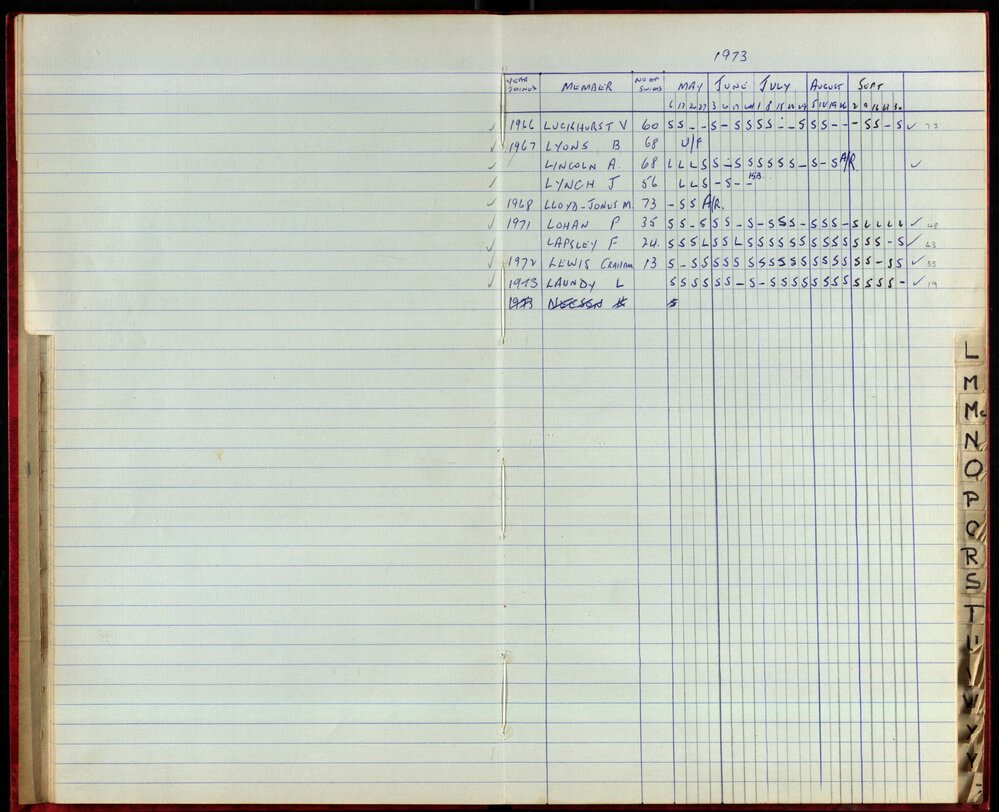 1973
YEAR JOINED MEMBER NO OF SWIMS MAY JUNE JULY AUGUST SEPT
✓ 1966 LUCKHURST V 60 S S - - S - S S S S - - S S S - - - - S S - S ✓ 73
✓ 1967 LYONS B 68 U/F
✓ LINCOLN A. 68 L L L S S - S S S S S S - S - S A/R. ✓
✓ LYNCH J 56 L L S - S - -
✓ 1968 LLOYD-JONES M. 73 - S S A/R.
✓ 1971 LOHAN P 35 S S - S S S - S - S S S - S S S - S L L L L ✓ 48
✓ LAPSLEY F 24 S S S L S S L S S S S S S S S S S S S S - S ✓ 43
✓ 1972 LEWIS GRAHAM 13 S - S S S S S S S S S S S S S S S S S - S S ✓ 33
✓ 1973 LAUNDY L S S S S S S - S - S S S S S S S S S S S S - ✓ 19
1973
L
M
Mc
N
O
P
Q
R
S
T
U
V
W
X
Y